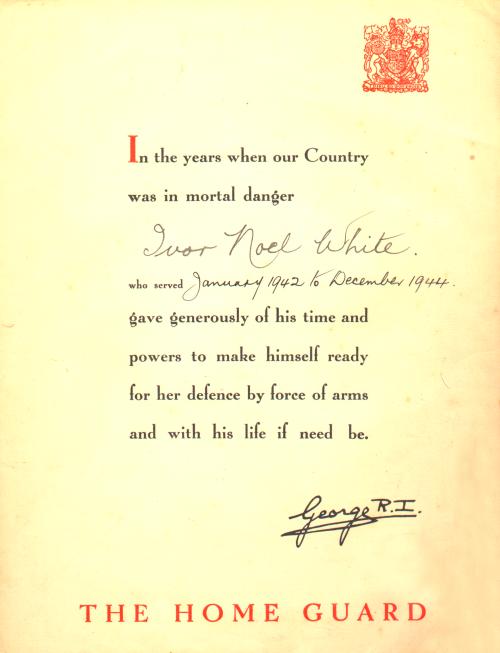 In the years when our Country
was in mortal danger
Ivor Noel White.
who served January 1942 to December 1944.
gave generously of his time and
powers to make himself ready
for her defence by force of arms
and with his life if need be.
George R.I.
THE HOME GUARD